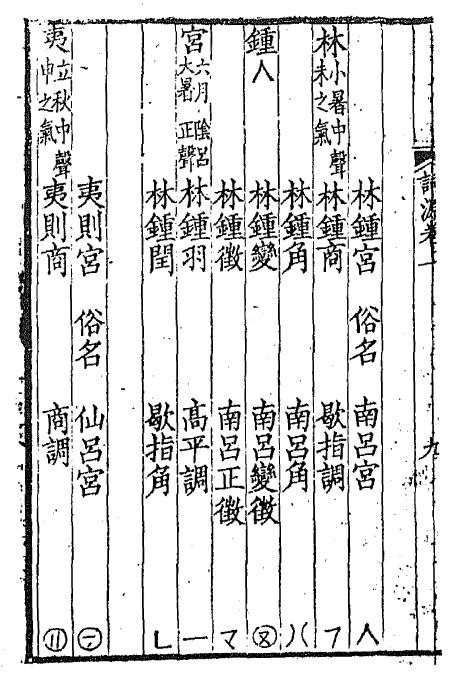 詞源卷一 九
林鍾宮 俗名 南呂宮 人
林 小暑中聲 未之氣 林鍾商 歇指調 フ
林鍾角 南呂角 八
鍾 人 林鍾變 南呂變徵
林鍾徵 南呂正徵 マ
宮 六月陰呂 大暑正聲 林鍾羽 高平調 一
林鍾閏 歇指角 ㄴ
夷則宮 俗名 仙呂宮 ㋦
夷 立秋中聲 申之氣 夷則商 商調 ⑪